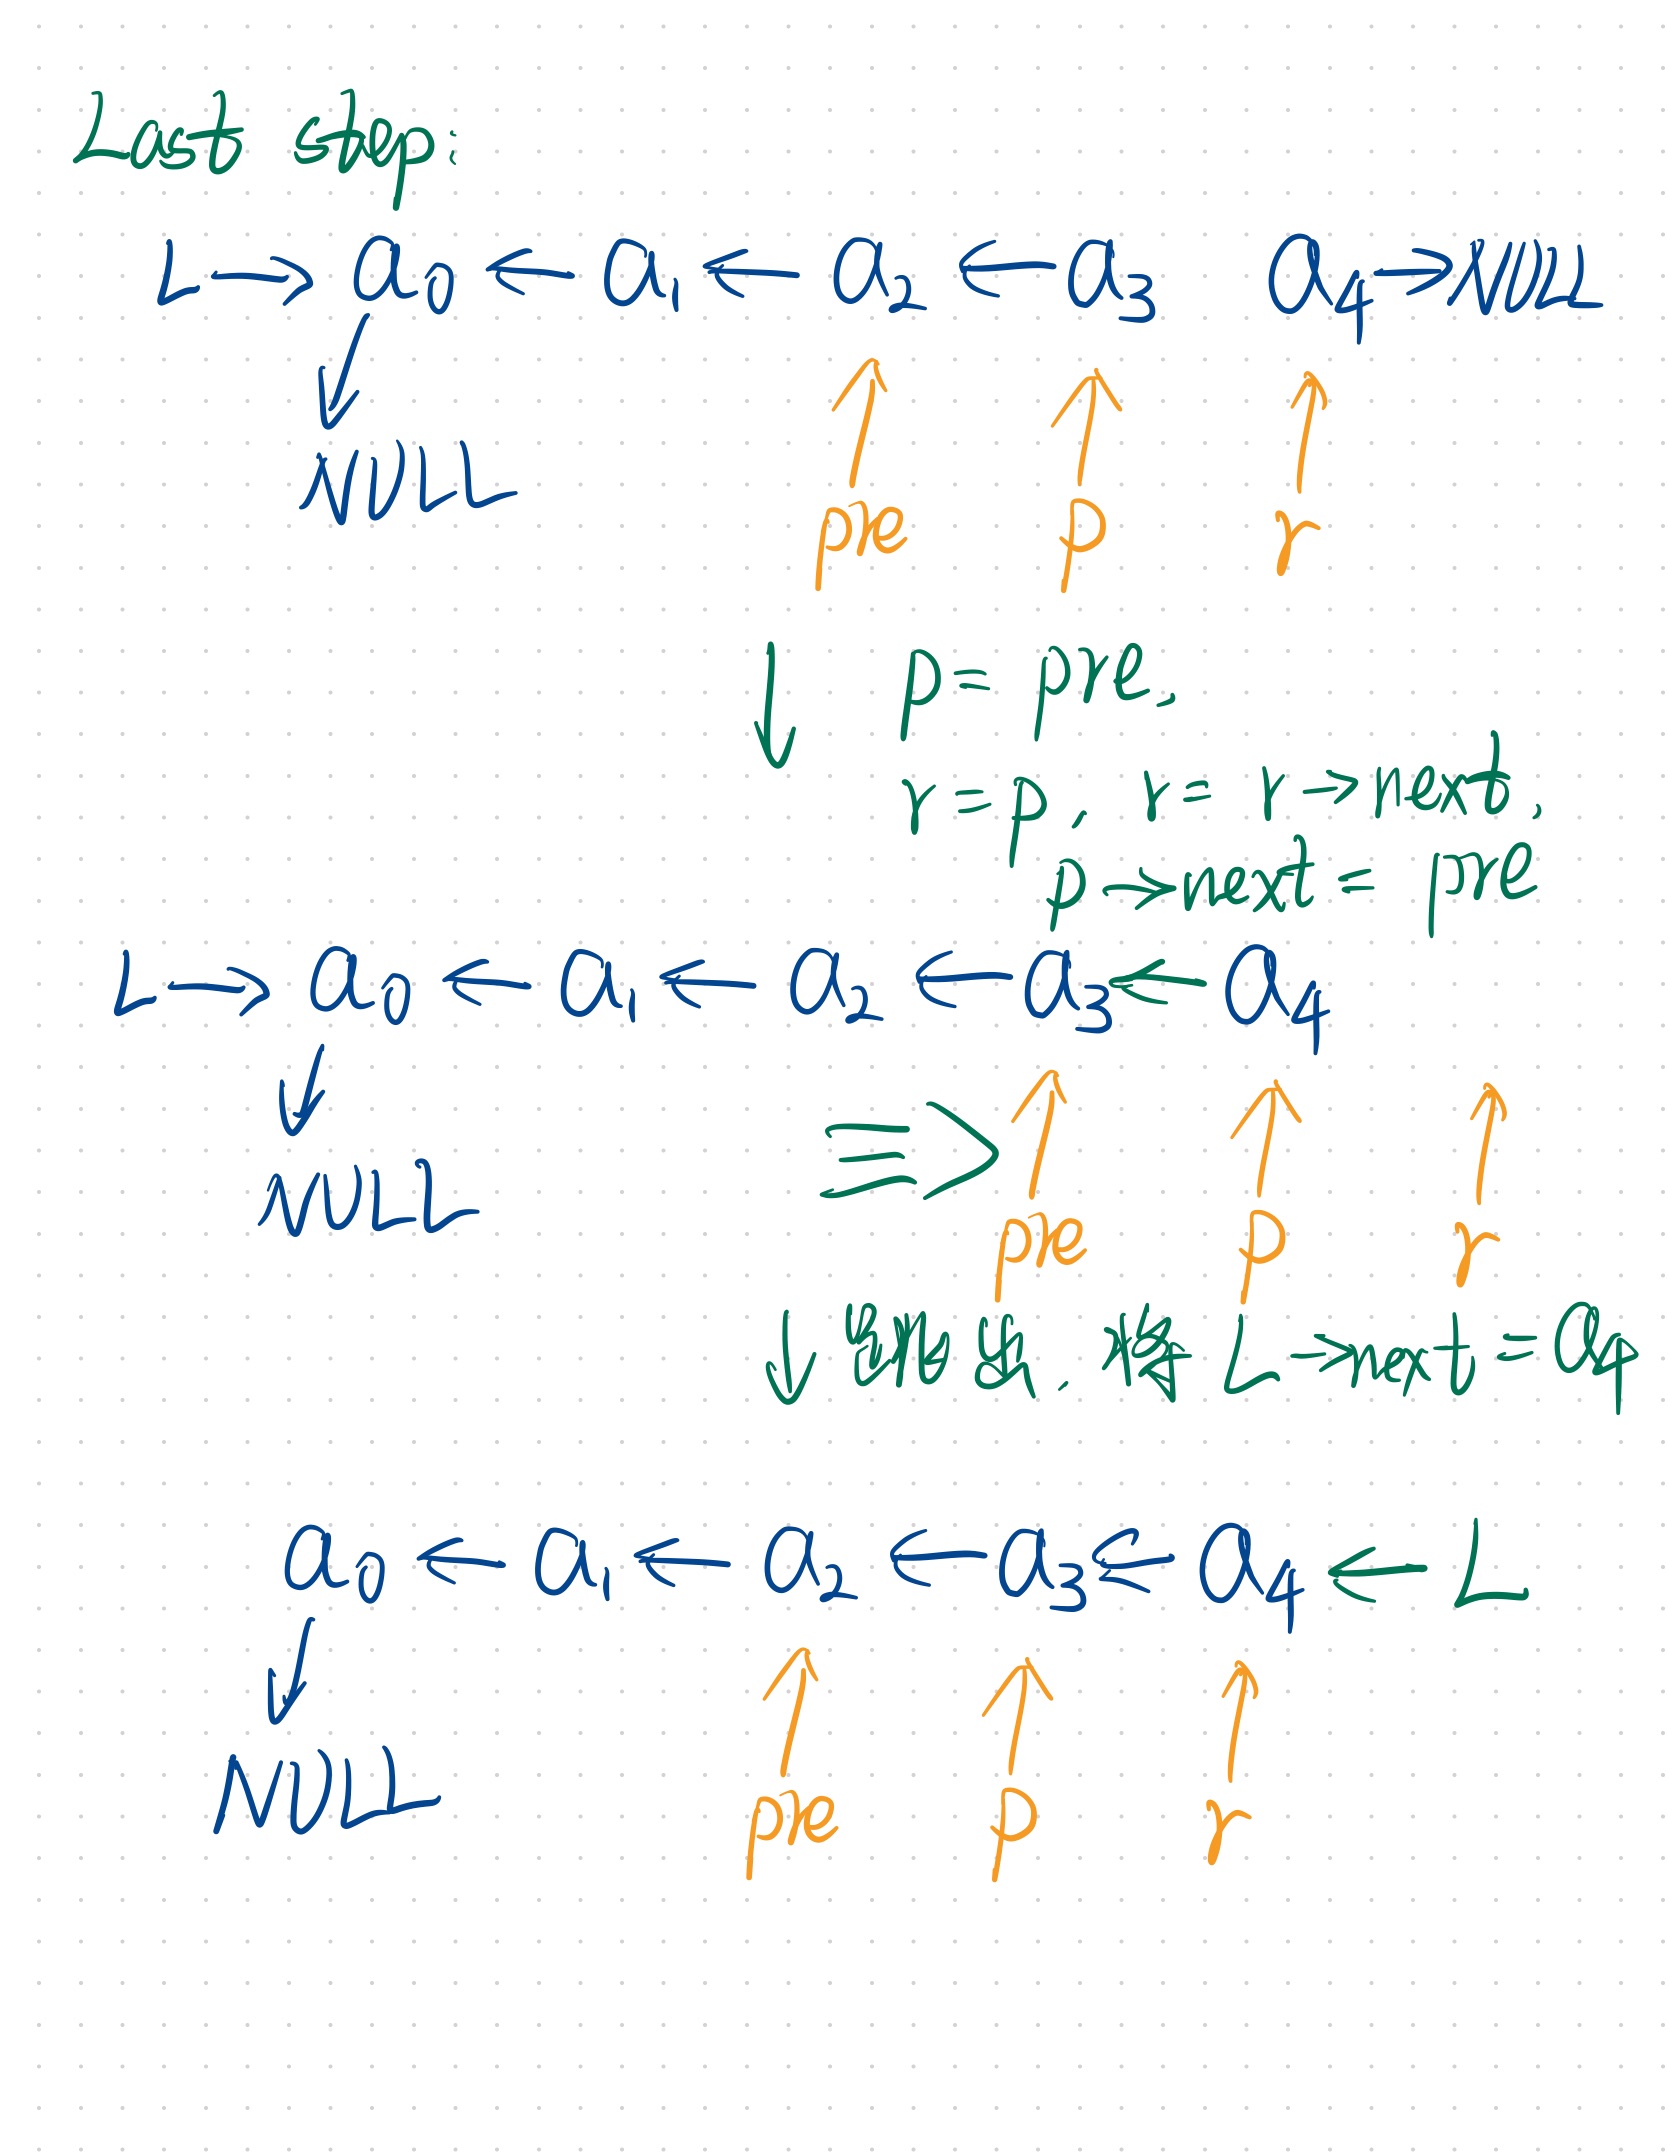 Last step:
L → a0 ← a1 ← a2 ← a3 a4 → NULL
↓
NULL
pre p r
↓ p = pre,
r = p, r = r → next,
p → next = pre
L → a0 ← a1 ← a2 ← a3 ← a4
↓
NULL
⇒ pre p r
↓ 将 L → next = a4
a0 ← a1 ← a2 ← a3 ← a4 ← L
↓
NULL
pre p r